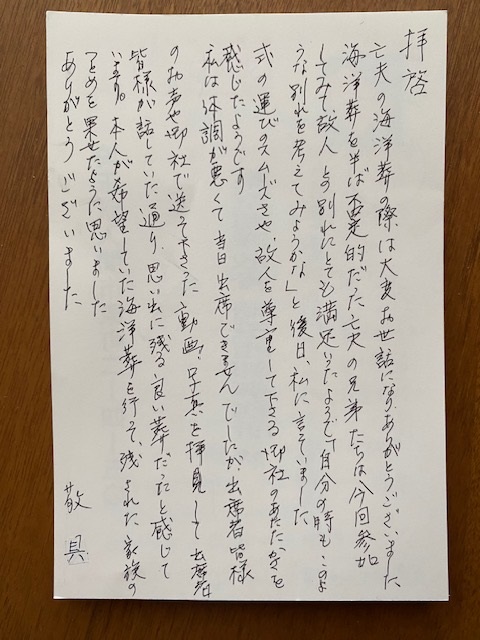 拝啓
亡夫の海洋葬の際は大変お世話になりありがとうございました
海洋葬を半ば否定的だった亡夫の兄弟たちは今回参加
してみて、故人との別れにとても満足いったようで「自分の時もこのよ
うな別れを考えてみようかな」と後日、私に言っていました
式の運びのスムーズさや、故人を尊重して下さる御社のあたたかさを
感じたようです
私は体調が悪くて当日出席できませんでしたが、出席者皆様
のお声や御社で送って下さった動画、写真を拝見して出席者
皆様が話していた通り、思い出に残る良い葬だったと感じて
います。本人が希望していた海洋葬を行って、残された家族の
つとめを果せたように思いました
ありがとうございました
敬具